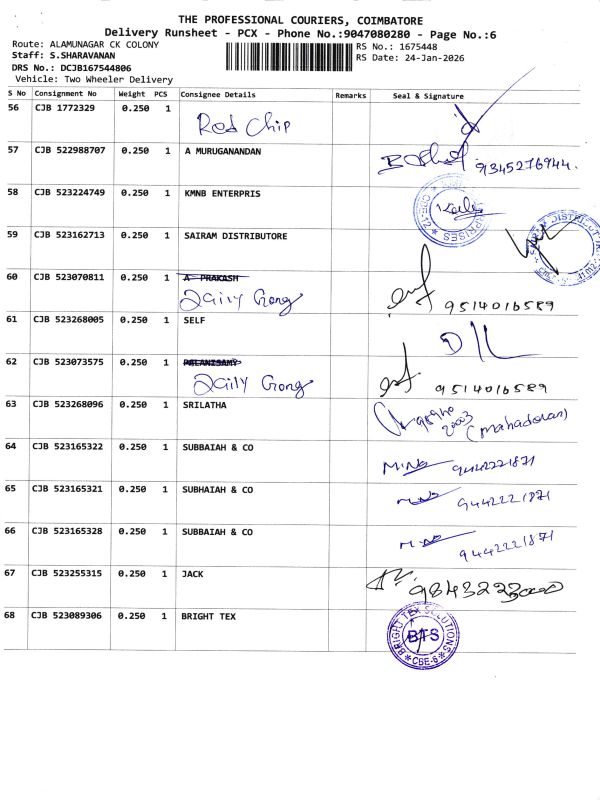 THE PROFESSIONAL COURIERS, COIMBATORE
Delivery Runsheet - PCX - Phone No.:9047080280 - Page No.:6
Route: ALAMUNAGAR CK COLONY
Staff: S.SHARAVANAN
DRS No.: DCJB167544806
Vehicle: Two Wheeler Delivery
RS No.: 1675448
RS Date: 24-Jan-2026
S No Consignment No Weight PCS Consignee Details Remarks Seal & Signature
56 CJB 1772329 0.250 1 Red Chip
57 CJB 522988707 0.250 1 A MURUGANANDAN 9345276944
58 CJB 523224749 0.250 1 KMNB ENTERPRIS
59 CJB 523162713 0.250 1 SAIRAM DISTRIBUTORE
60 CJB 523070811 0.250 1 A PRAKASH
9514016589
61 CJB 523268005 0.250 1 SELF
62 CJB 523073575 0.250 1 PALANISAMY
9514016589
63 CJB 523268096 0.250 1 SRILATHA
64 CJB 523165322 0.250 1 SUBBAIAH & CO 9442221871
65 CJB 523165321 0.250 1 SUBHAIAH & CO 9442221871
66 CJB 523165328 0.250 1 SUBBAIAH & CO 9442221871
67 CJB 523255315 0.250 1 JACK
68 CJB 523089306 0.250 1 BRIGHT TEX
BRIGHT TEX SOLUTIONS
BTS
* CBE-6 *